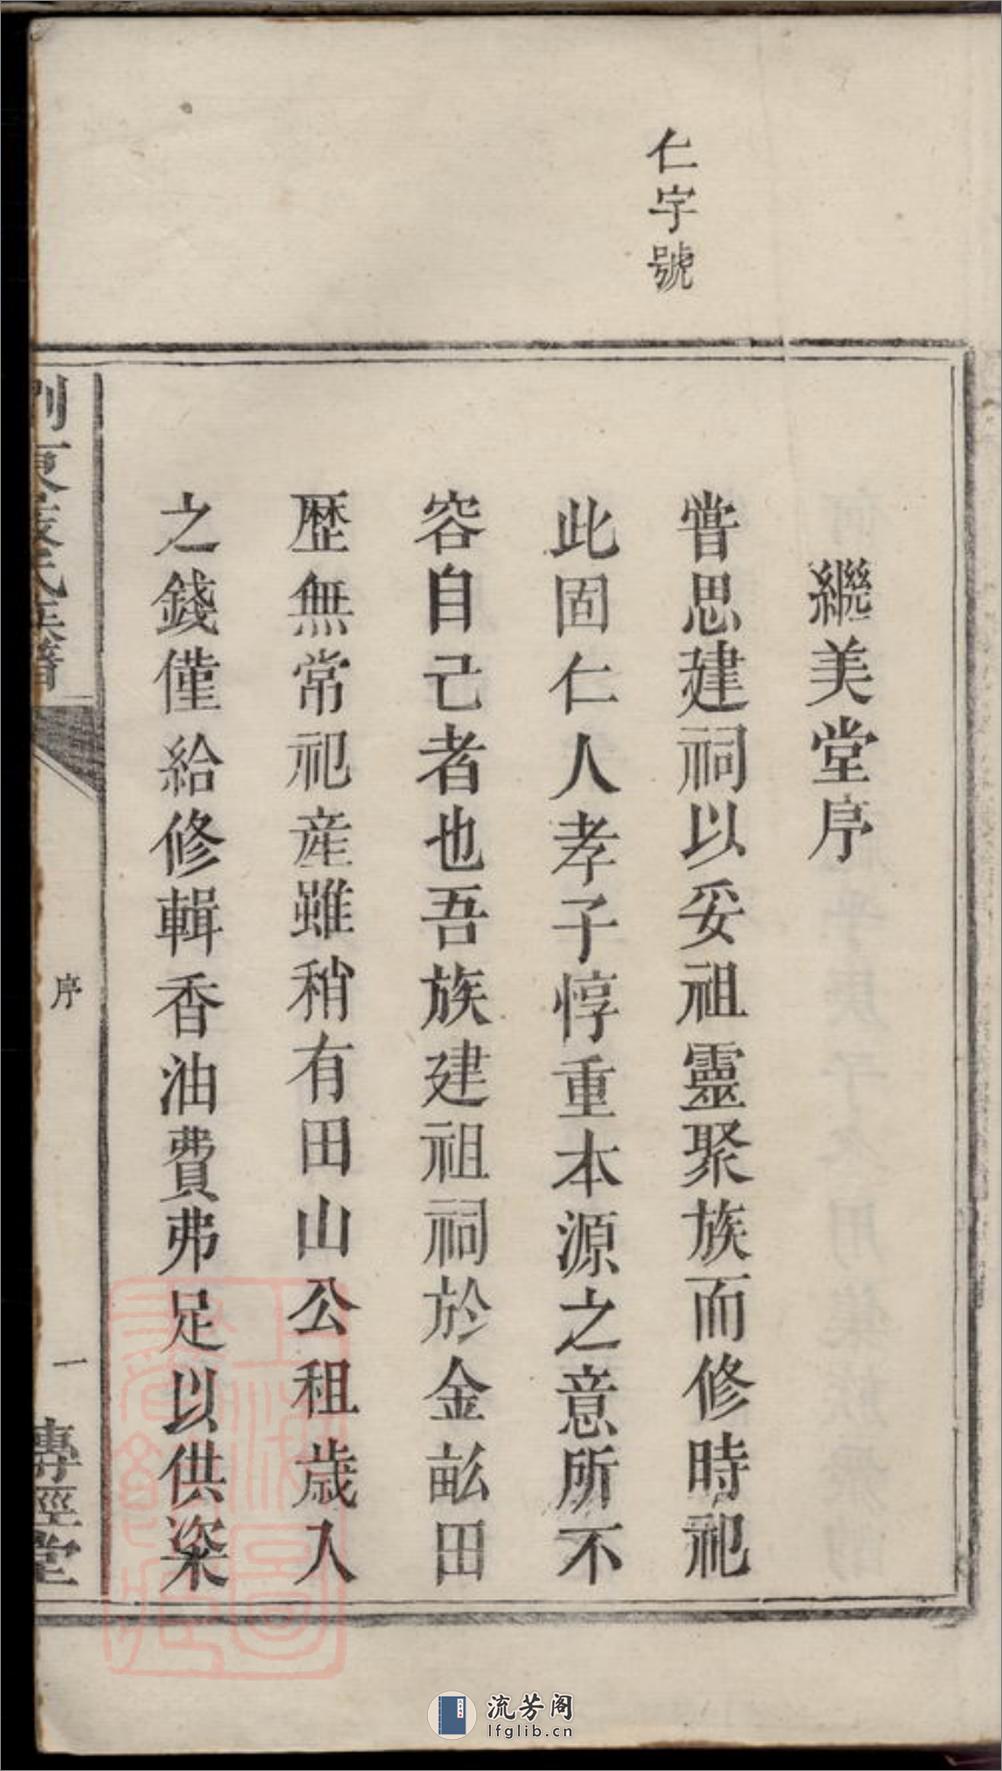 仁字號
繼美堂序
嘗思建祠以妥祖靈聚族而修時祀
此固仁人孝子惇重本源之意所不
容自己者也吾族建祖祠於金畝田
歷無常祀産雖稍有田山公租歲入
之錢僅給修輯香油費弗足以供粢
序
一
專經堂
流芳阁
lfglib.cn